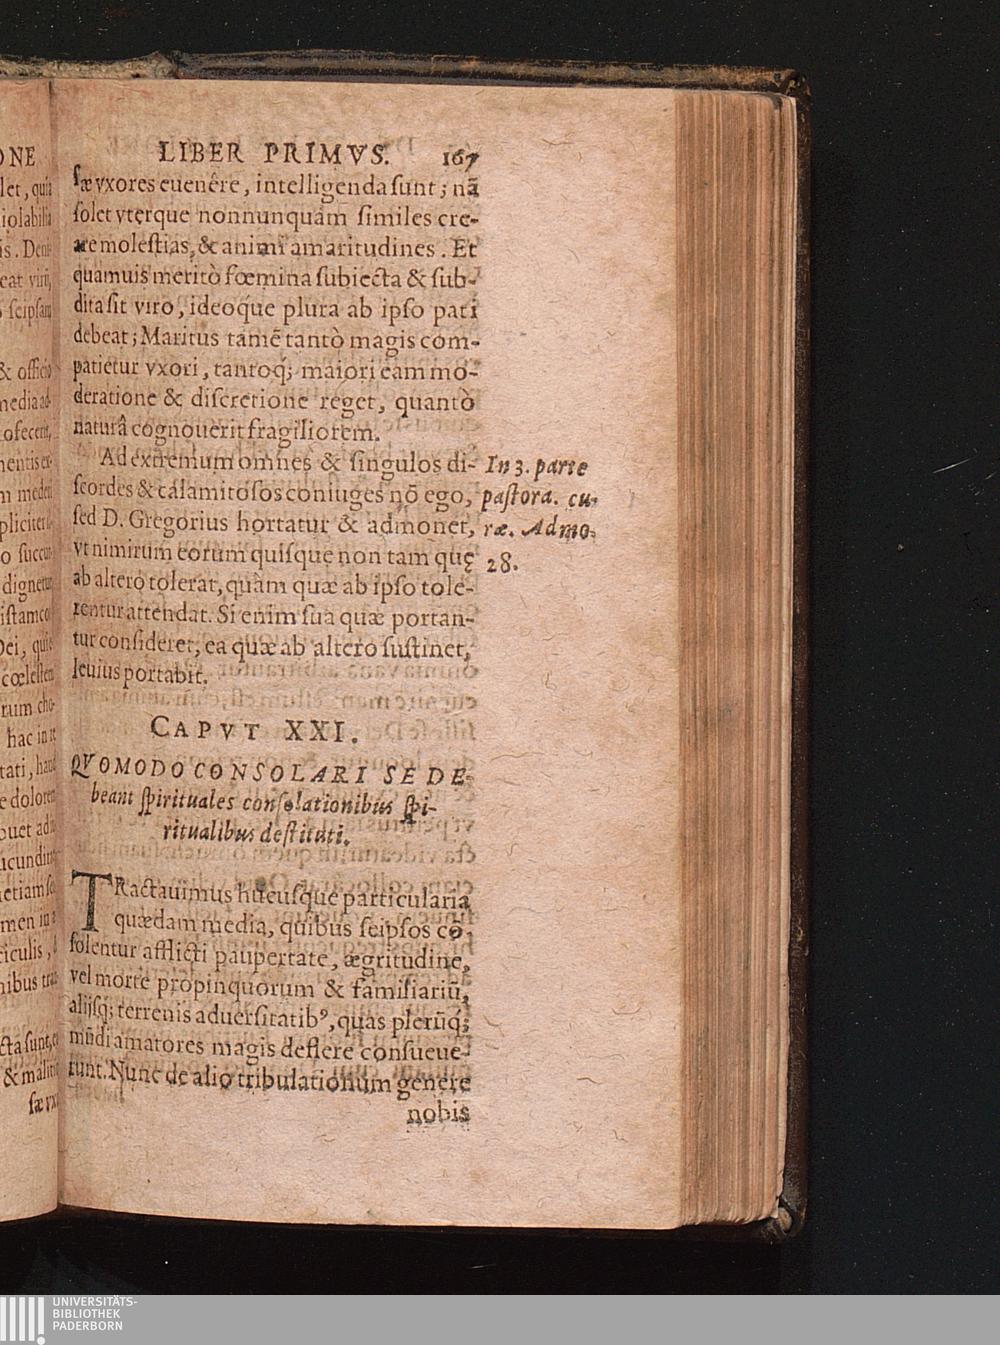 LIBER PRIMVS. 167
sæ vxores euenêre, intelligenda sunt; nã
solet vterque nonnunquàm similes cre-
are molestias, & animi amaritudines. Et
quamuis meritò fœmina subiecta & sub-
dita sit viro, ideoq́ue plura ab ipso pati
debeat; Maritus tamẽ tantò magis com-
patietur vxori, tantoq́; maiori eam mo-
deratione & discretione reget, quantò
naturâ cognouerit fragiliorem.
Ad extremum omnes & singulos di-
scordes & calamitosos coniuges nõ ego,
sed D. Gregorius hortatur & admonet,
vt nimirum eorum quisque non tam quę
ab altero tolerat, quàm quæ ab ipso tole-
rentur attendat. Si enim sua quæ portan-
tur consideret, ea quæ ab altero sustinet,
leuius portabit.
In 3. parte
pastora. cu-
ræ. Admo.
28.
CAPVT XXI.
QVOMODO CONSOLARI SE DE-
beant spirituales consolationibus spi-
ritualibus destituti.
TRactauimus hucusque particularia
quædam media, quibus seipsos cõ-
solentur afflicti paupertate, ægritudine,
vel morte propinquorum & familiariũ,
alijsq́; terrenis aduersitatibꝰ, quas plerũq́;
mũdi amatores magis deflere consueue-
runt. Nunc de alio tribulationum genere
nobis
ONE
let, quia
iolabilia
is. Deni-
eat virũ,
seipsam
& officio
media ad-
ofecerit,
mentis ex-
m mederi
pliciter
o succur-
dignetur
istam co-
Dei, quie
cœlestem
rum cho-
hac in re
tati, haud
e dolorem
icundita
etiam se
men in a
ciculis,
nibus tra-
cta sunt,
& malitio
sæ vxo
UNIVERSITÄTS-
BIBLIOTHEK
PADERBORN